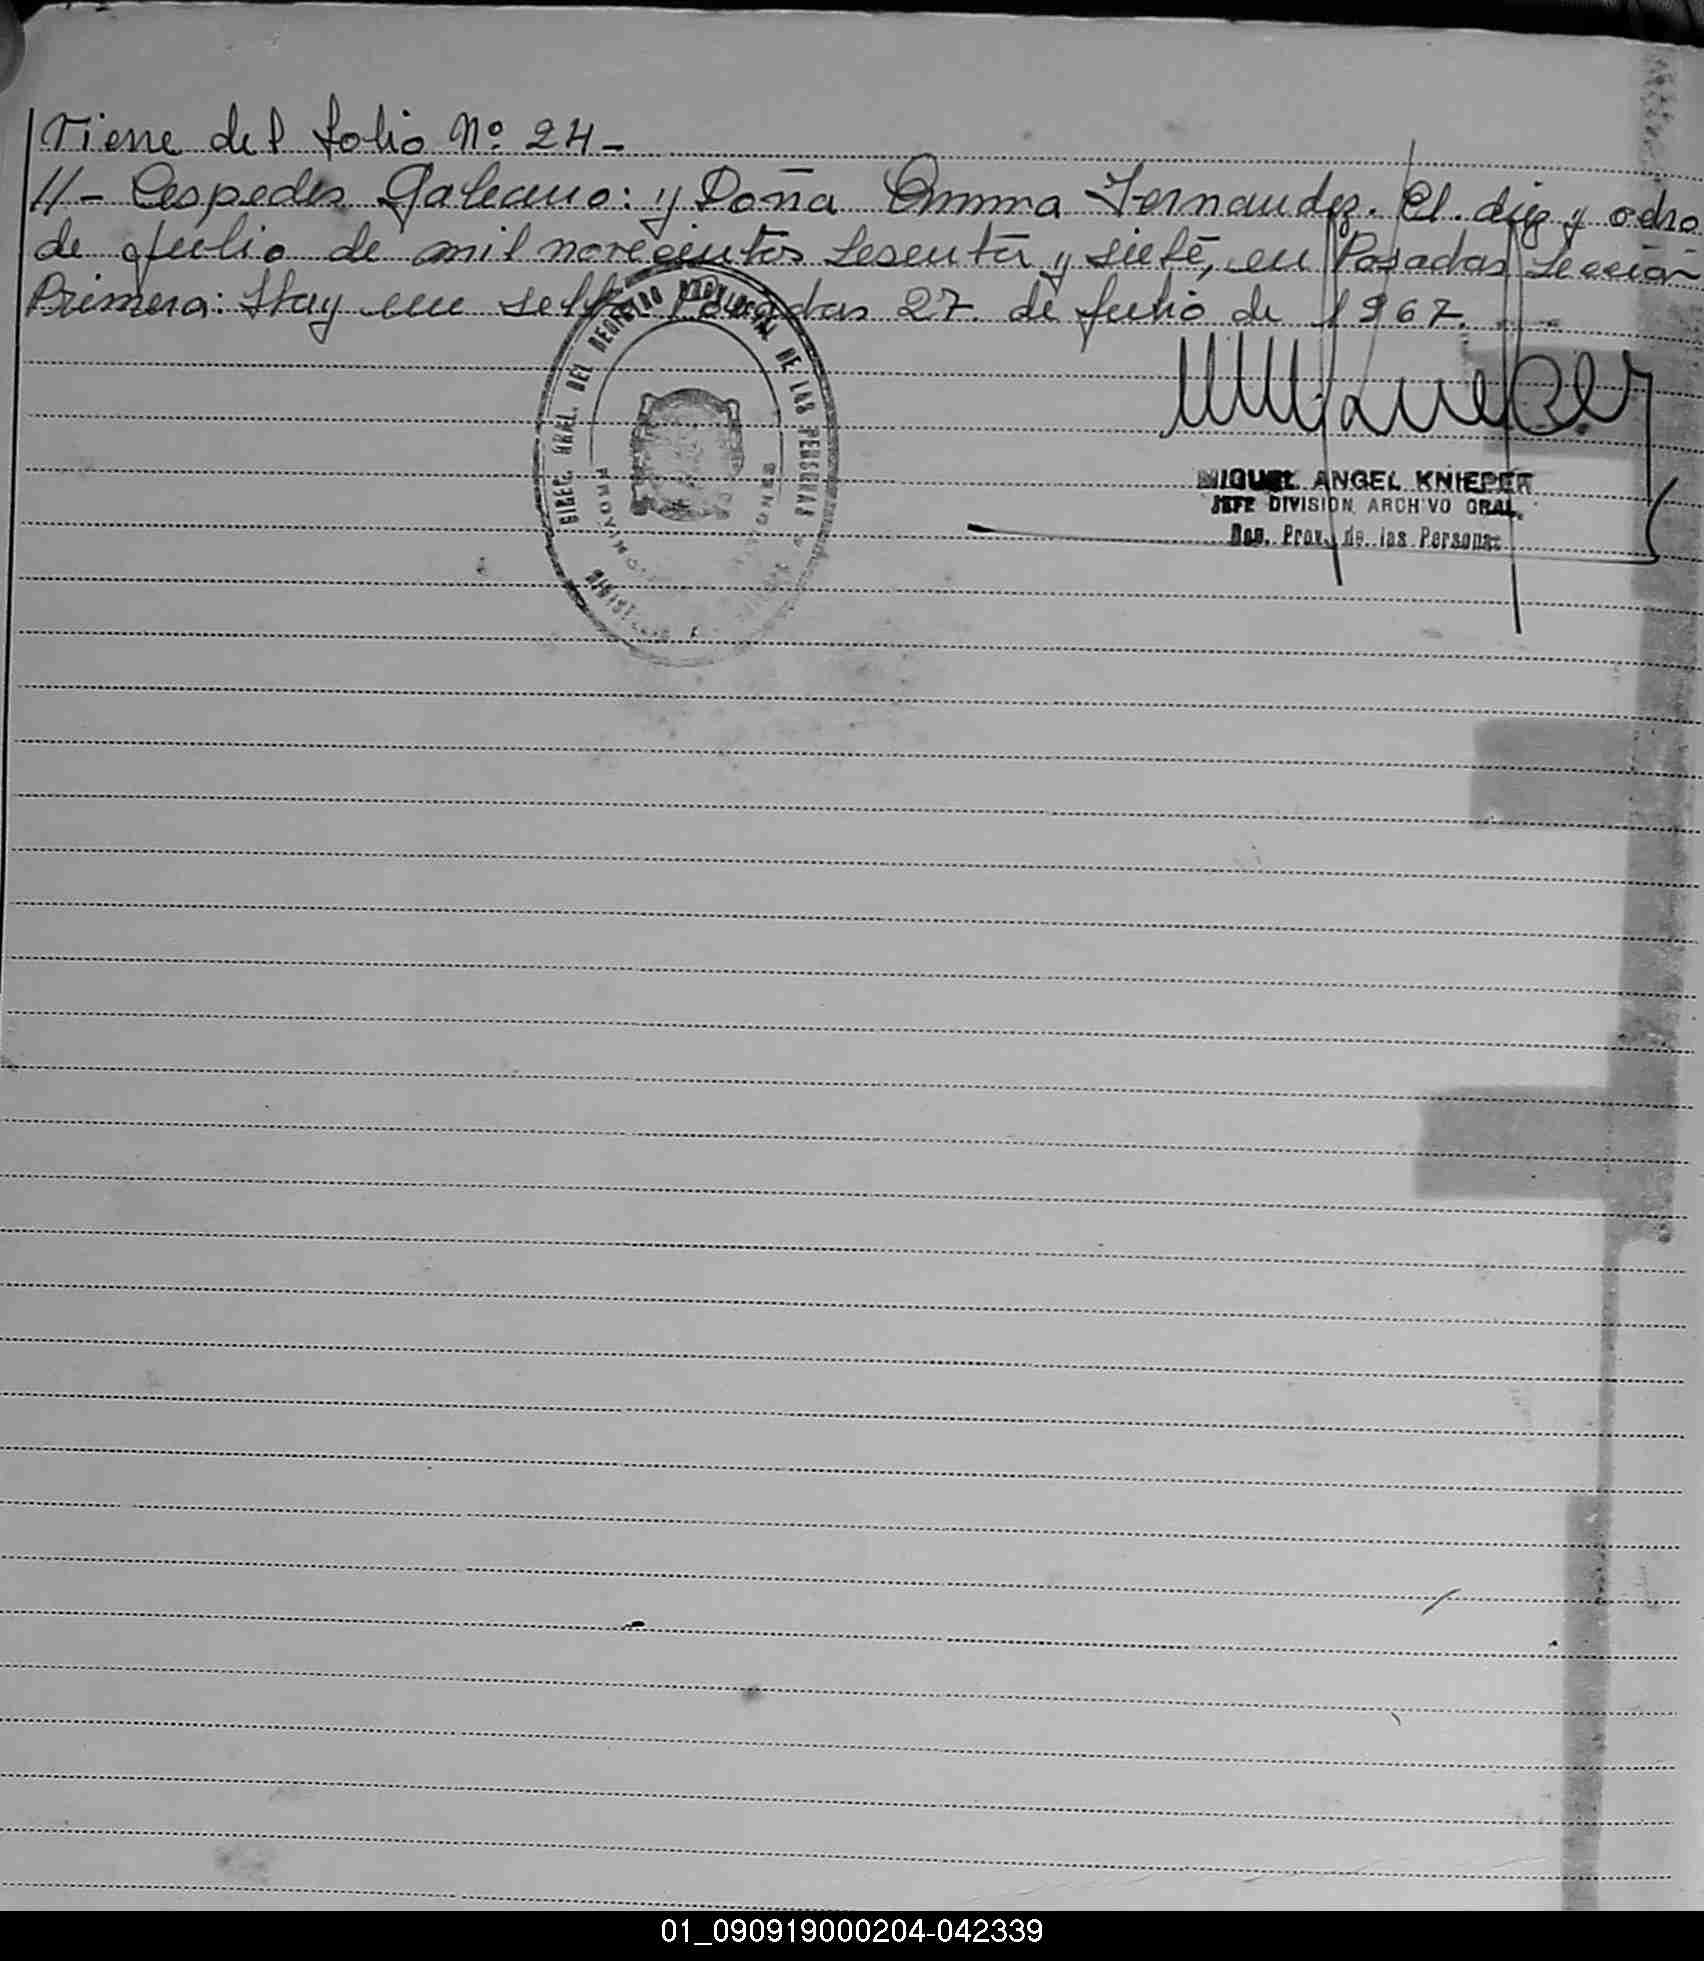 Viene del folio Nº 24-
//- Cespedes Galeano: y Doña Emma Fernandez. El diez y ocho
de Julio de mil novecientos sesenta y siete, en Posadas Sección
Primera: Hay un sello Posadas 27 de Julio de 1967.
DIREC. GRAL. DEL REGISTRO PROVINCIAL DE LAS PERSONAS
MIGUEL ANGEL KNIEPER
JEFE DIVISION ARCHIVO GRAL.
Reg. Prov. de las Personas
01_090919000204-042339